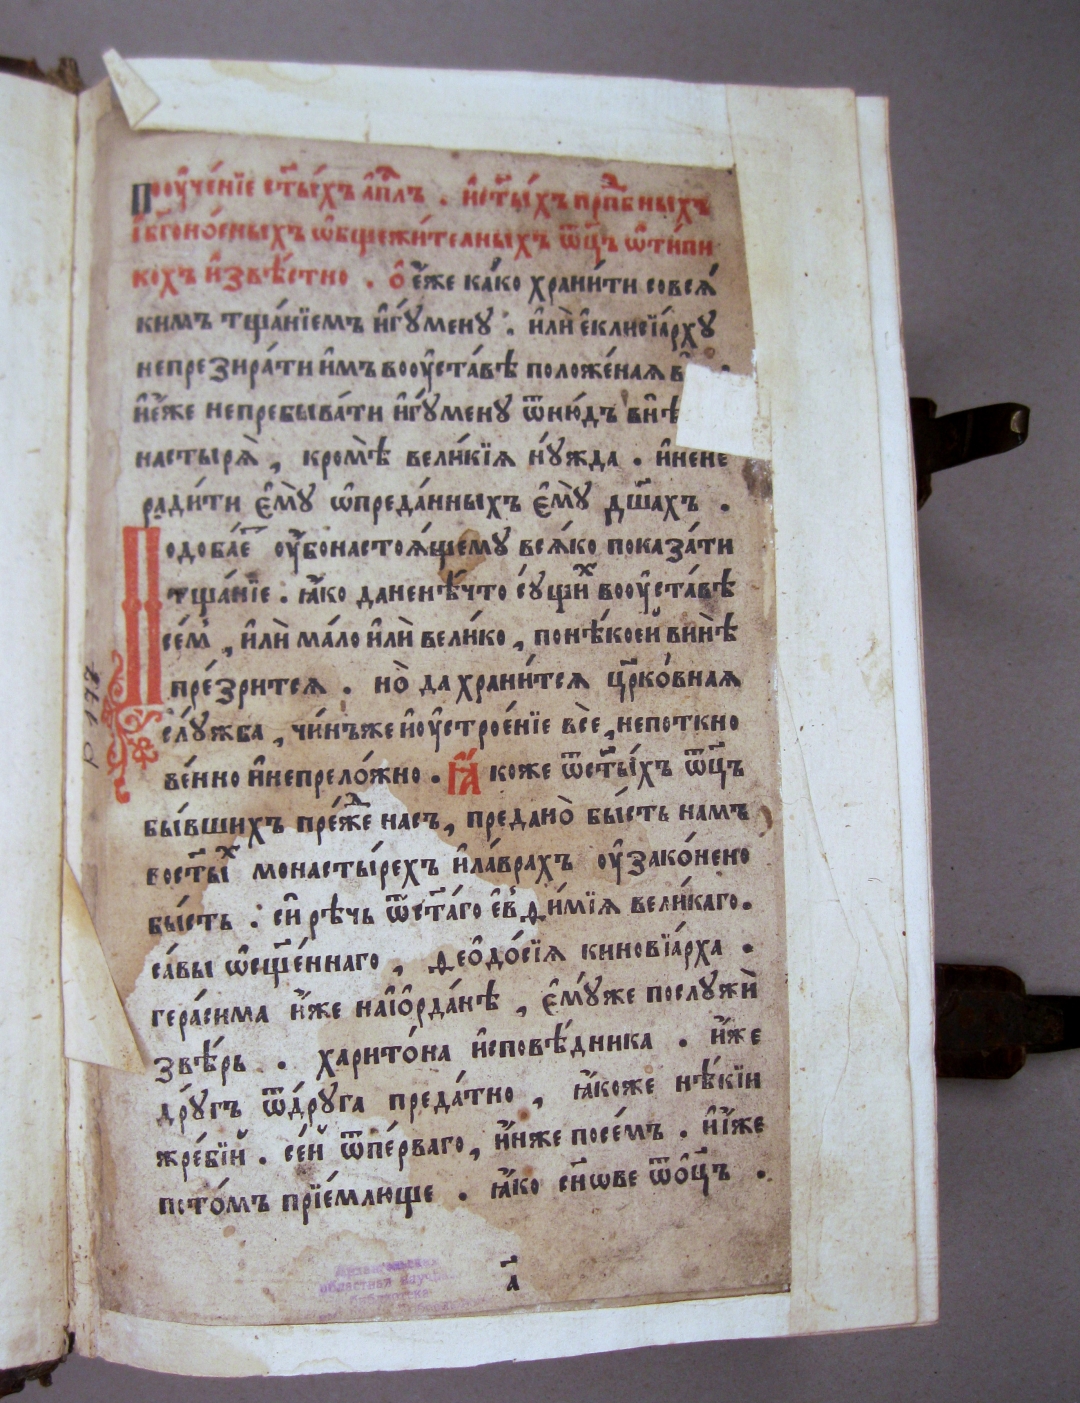 Пооу҆че́нїе ст҃ы́хъ а҆пл҃ъ . и҆ст҃ы́хъ прпⷣбныхъ
и҆бг҃оно́сныхъ ѡ҆бщежи́телныхъ ѿц҃ъ ѡ҆ти́пи
кохъ и҆звѣ́стно . ѻ҆ е҆́же ка́ко храни́ти совсѧ́
кимъ тща́нїемъ и҆гꙋ́менꙋ . и҆лѝ е҆клисїа́рхꙋ
непрезира́ти и҆мъ вооу҆ста́вѣ положе́наѧ
и҆е҆́же непребыва́ти и҆гꙋ́менꙋ ѿню́дъ внѣ̀
настырѧ̀ , кромѣ̀ вели́кїѧ нꙋ́жда . и҆нене
ради́ти є҆мꙋ̀ ѡ҆преда́нныхъ є҆мꙋ̀ дш҃ахъ .
Подоба́еⷮ оу҆́бонастоѧ́щемꙋ всѧ́ко показа́ти
тща́нїе . ꙗ҆́ко даненѣ́что сꙋ́щиⷯ вооу҆ста́вѣ
се́мъ , и҆лѝ ма́ло и҆лѝ вели́ко , понѣ́коей винѣ̀
пре́зритсѧ . но̀ да храни́тсѧ цр҃ко́внаѧ
слꙋ́жба , чи́нъже и҆оу҆строе́нїе всѐ , непоткно
ве́нно и҆непрело́жно . Ꙗ҆́коже ѿст҃ы́хъ ѿц҃ъ
бы́вшихъ пре́жⷣе насъ , предано̀ бы́сть намъ
востⷯ҃ы монасты́рехъ и҆ла́врахъ оу҆зако́нено
бы́сть . си҆рѣчь ѿст҃а́го е҆вѳи́мїѧ вели́каго .
са́вы ѡ҆сщ҃е́ннаго , ѳео҆до́сїѧ киновїа́рха .
гера́сима и҆́же наїѻ҆рда́нѣ , є҆мꙋ́же послꙋжѝ
ѕвѣ́рь . харито́на и҆сповѣ́дника . и҆́же
дрꙋ́гъ ѿдрꙋ́га преда́тно , ꙗ҆́коже нѣ́кїи
жре́бїй . се́й ѿпе́рваго , и҆́нже посе́мъ . и҆і҆́же
пото́мъ прїе́млюще . ꙗ҆́ко сн҃ѡве ѿо҆ц҃ъ .
а҃
Архангельская
областная научная
библиотека